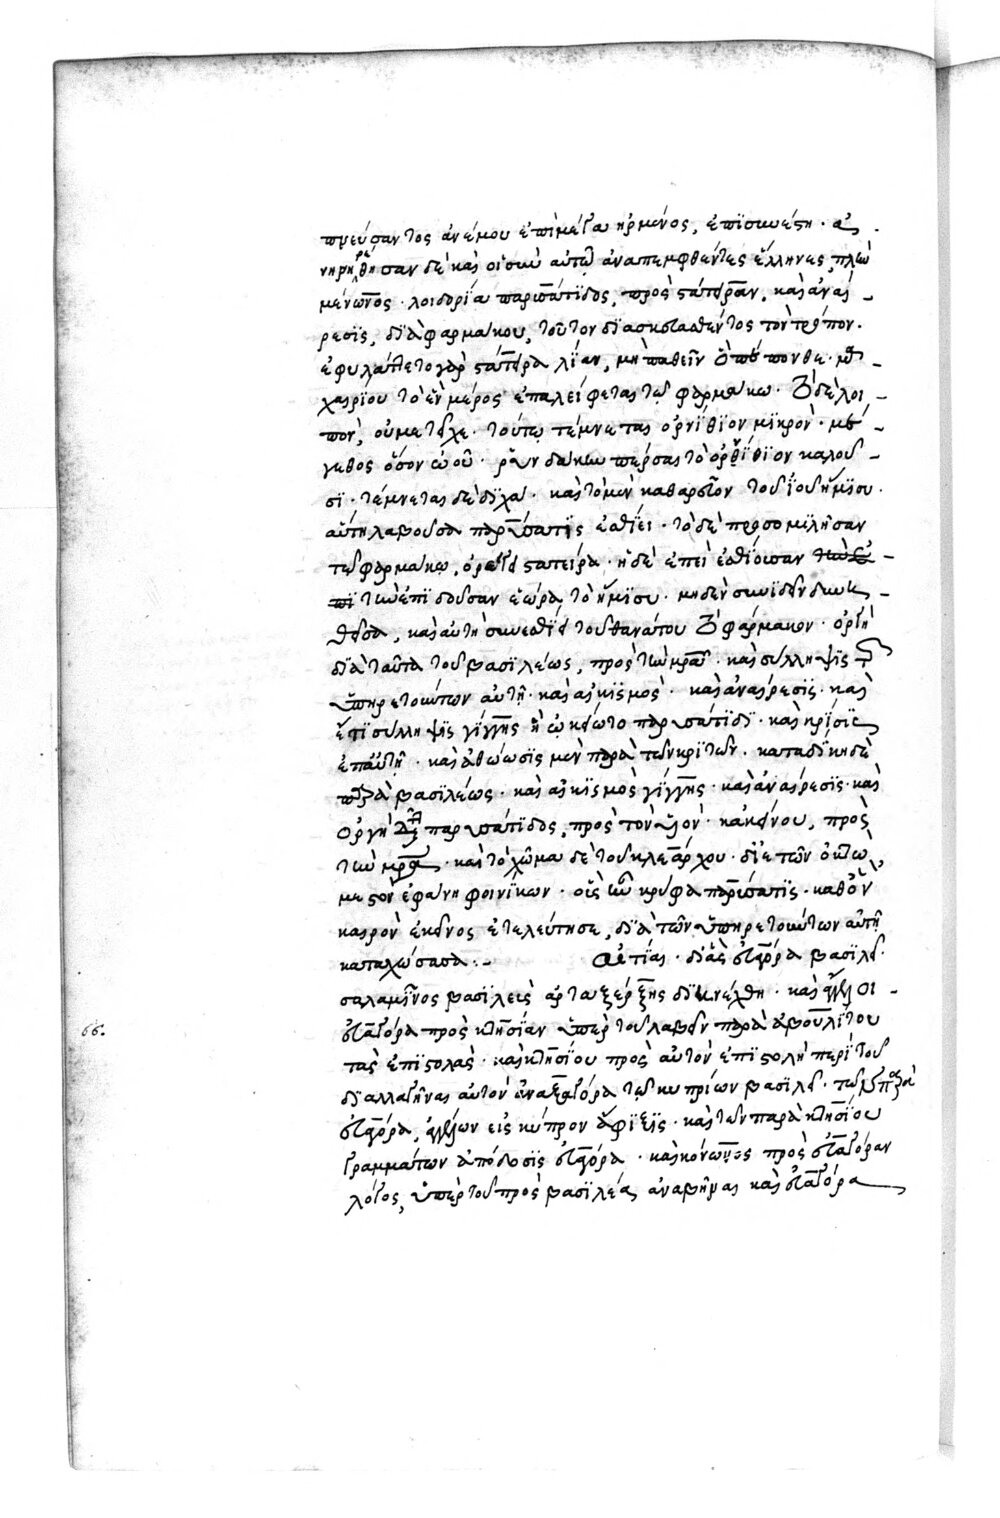 πνεύσαντος ἀνέμου ἐπὶ μέγα ἠρμένος, ἐπισυνέστη · ἀ
νηρηρέθησαν δὲ καὶ οἱ σὺν αὐτῶ ἀναπεμφθέντες ἕλληνες, πλὴν
μένωνος · λοιδορία παρισάτιδος, πρὸς στάτειραν, καὶ ἀναί
ρεσις, διὰ φαρμάκου, τοῦτον διασκευασθέντος τὸν τρόπον ·
ἐφυλάττετο γὰρ στάτειρα λίαν, μὴ παθεῖν ὃ πέπονθε · μα
χαιρίου τὸ ἓν μέρος ἐπαλείφεται τῶ φαρμάκω · τὸ δὲ λοι
πὸν, οὐ μετεῖχε · τούτω τέμνεται ὀρνίθιον μικρὸν · μέ
γεθος ὅσον ὠοῦ · ῥυνδάκην πέρσαι τὸ ὀρνίθιον καλοῦ
σι · τέμνεται δὲ δίχα · καὶ τὸ μὲν καθαρεῦον τοῦ ἰοῦ ἥμισυ ·
αὕτη λαβοῦσα παρύσατις ἐσθίει · τὸ δὲ προσομιλῆσαν
τῶ φαρμάκω, ὀρέγει στατείρα · ἡ δὲ ἐπεὶ ἐσθίουσαν
τὴν ἐπιδοῦσαν ἑώρα τὸ ἥμισυ · μηδὲν συνιδεῖν δυνη
θεῖσα, καὶ αὐτὴ συνεσθίει τοῦ θανάτου τὸ φάρμακον · ὀργὴ
διὰ ταῦτα τοῦ βασιλέως, πρὸς τὴν μητέρα · καὶ σύλληψις τῶν
ὑπηρετούντων αὐτῆ · καὶ αἰκισμὸς · καὶ ἀναίρεσις · καὶ
ἔτι σύλληψις γίγγης ἣ ὠκείωτο παρυσάτιδι · καὶ κρίσις
ἐπ' αὐτῆ · καὶ ἀθώωσις μὲν παρὰ τῶν κριτῶν · καταδίκη δὲ
παρὰ βασιλέως · καὶ αἰκισμὸς γίγγης · καὶ ἀναίρεσις · καὶ
ὀργὴ διὰ παρυσάτιδος, πρὸς τὸν υἱὸν · κἀκείνου, πρὸς
τὴν μητέρα · καὶ τὸ χῶμα δὲ τοῦ κλεάρχου · δι' ἐτῶν ὀκτὼ
μεστὸν ἐφάνη φοινίκων · οἷς ἦν κρύφα παρύσατις · καθ' ὃν
καιρὸν ἐκεῖνος ἐτελεύτησε, διὰ τῶν ὑπηρετούντων αὐτῆ
καταχώσασα · – αἰτίας · δι' ἃς εὐαγόρα βασιλεῖ
σαλαμῖνος βασιλεὺς ἀρταξέρξης διηνέχθη · καὶ ἄγγελοι
εὐαγόρα πρὸς κτησίαν ὑπὲρ τοῦ λαβεῖν παρὰ ἀβουλίτου
66. τὰς ἐπιστολὰς · καὶ κτησίου πρὸς αὐτὸν ἐπιστολὴ περὶ τοῦ
διαλλαγῆναι αὐτὸν ἀναξαγόρα τῶ κυπρίων βασιλεῖ · τῶν παρὰ
εὐαγόρα, ἀγγέλων εἰς κύπρον ἄφιξις · καὶ τῶν παρὰ κτησίου
γραμμάτων ἀπόδοσις εὐαγόρα · καὶ κόνωνος πρὸς εὐαγόραν
λόγος, ὑπὲρ τοῦ πρὸς βασιλέα ἀναβῆναι καὶ εὐαγόρα